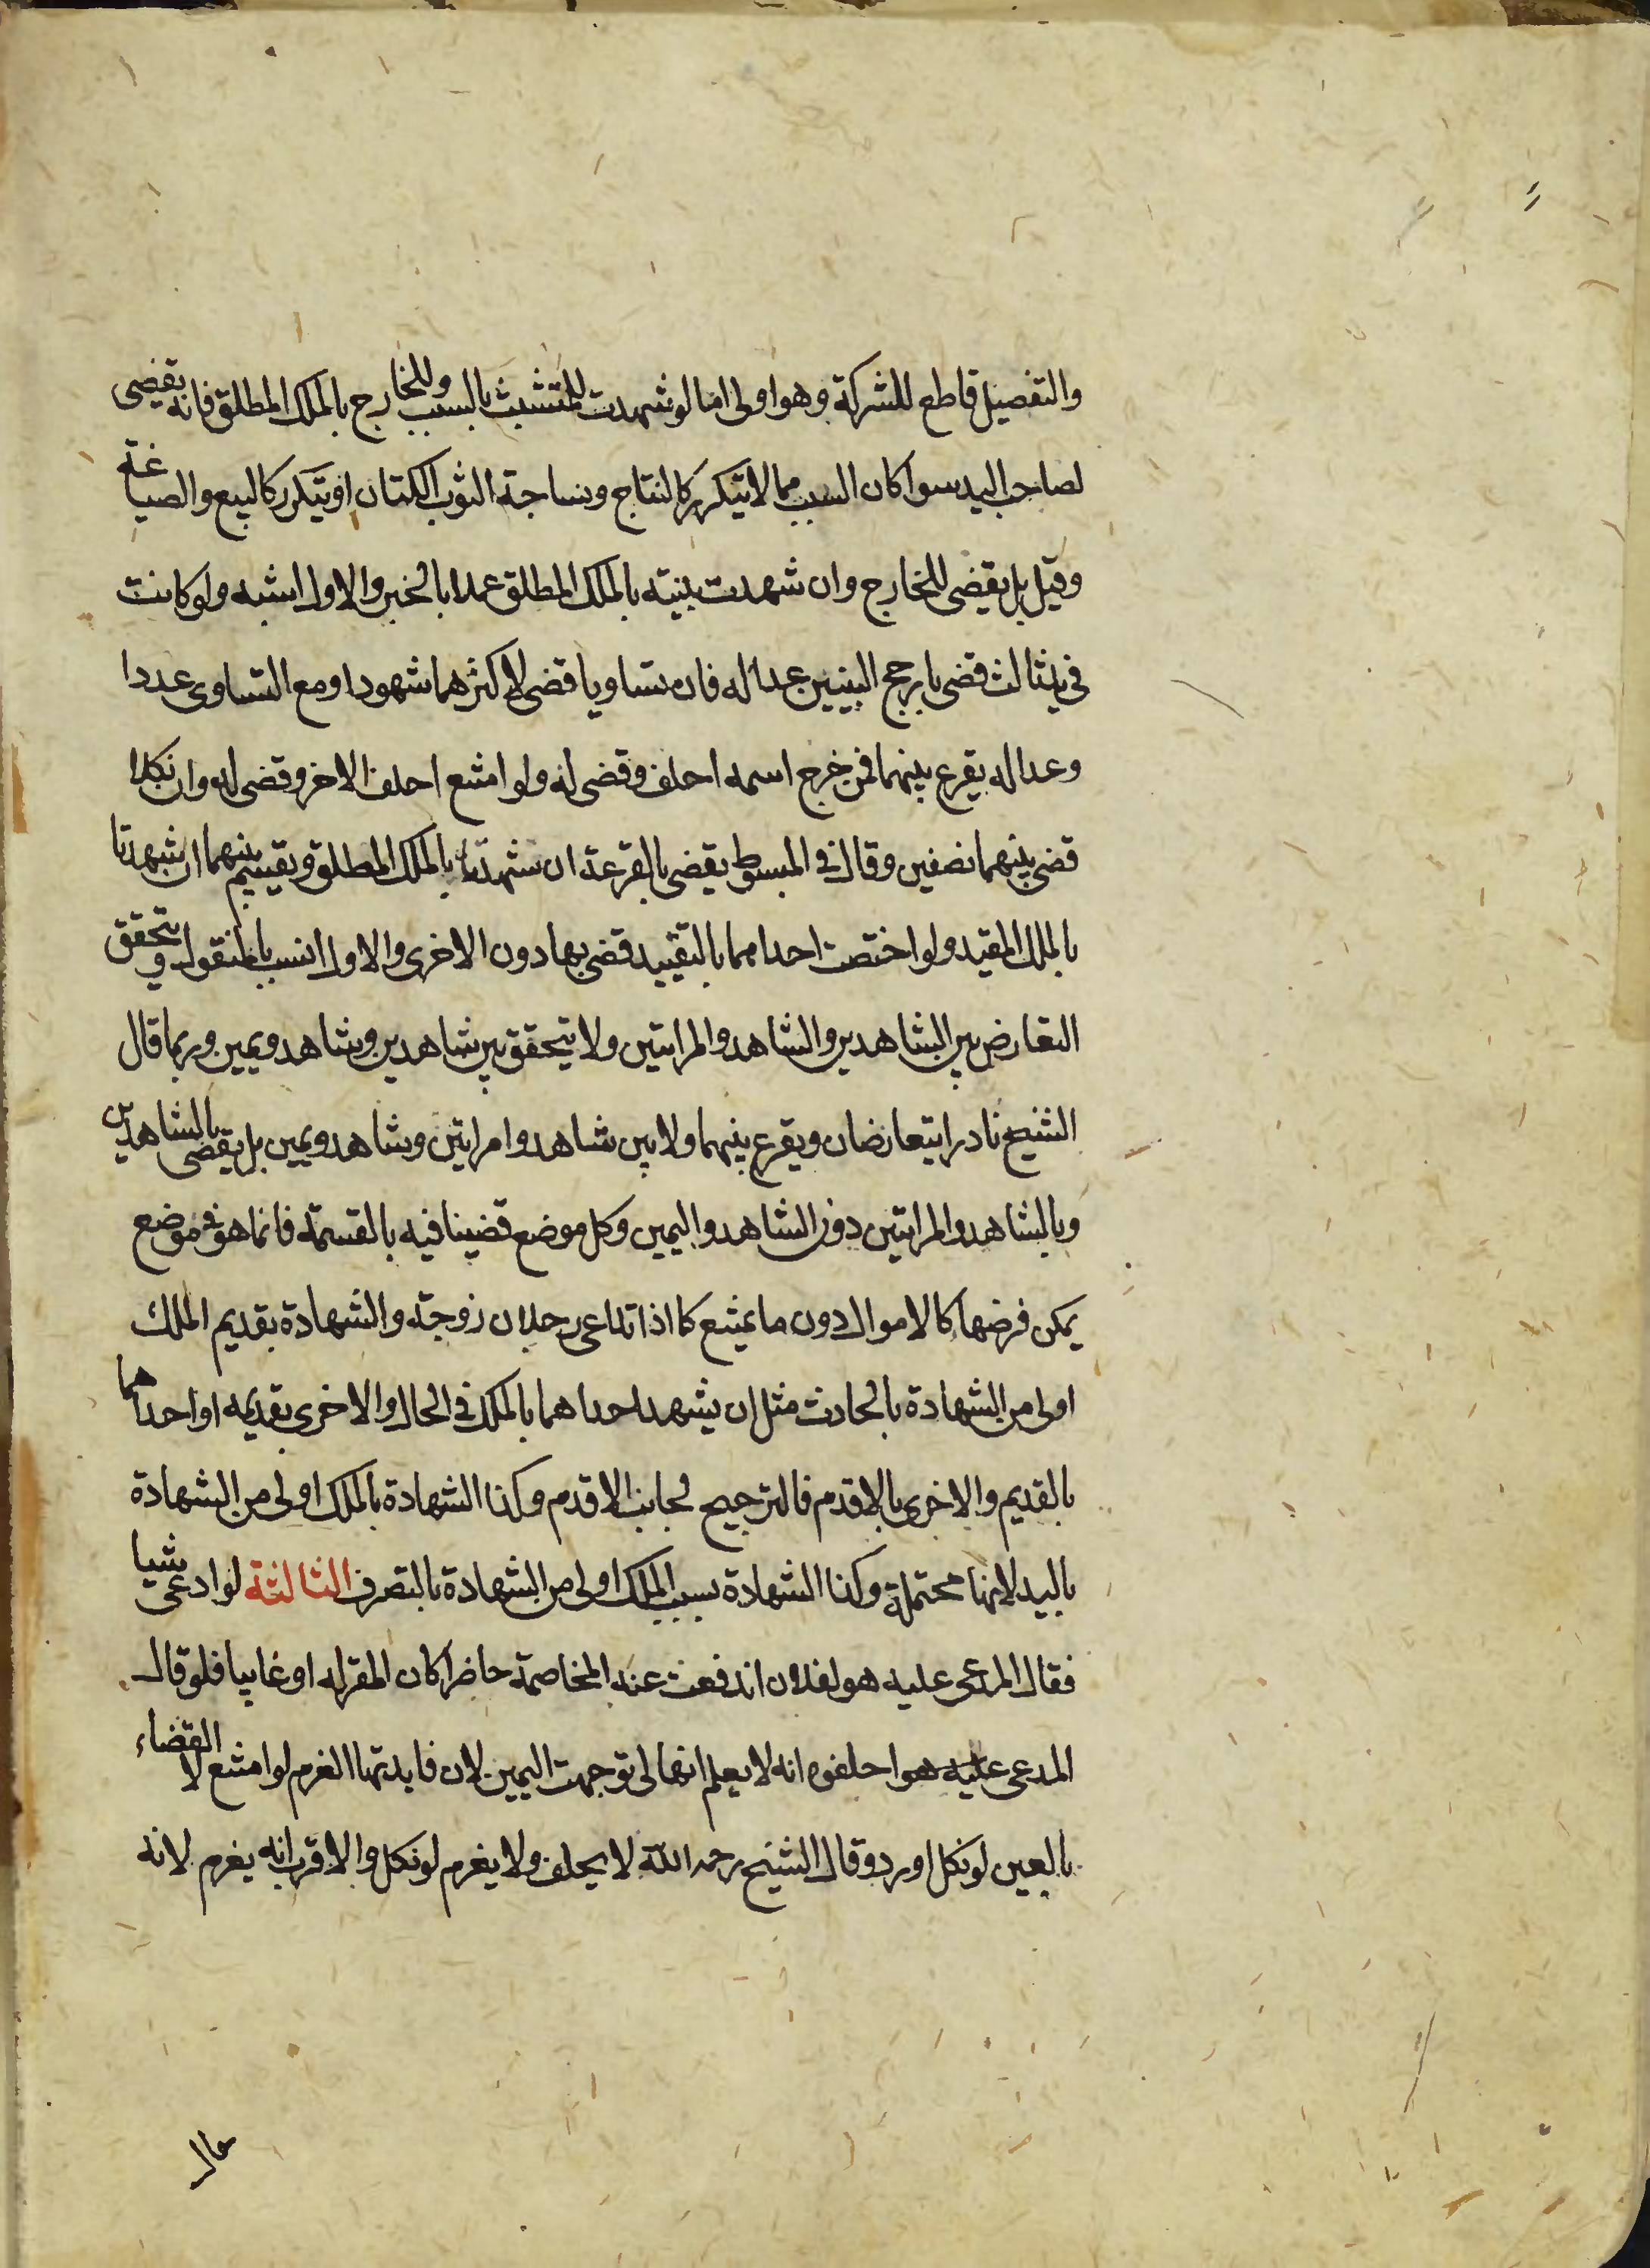 والتفصيل قاطع للشركة وهو اولى اما لو شهدت للمتشبث بالسبب وللخارج بالملك المطلق فانه يقضى
لصاحب اليد سوا كان السبب مما لا يتكرر كالنتاج ونساجة الثوب الكتان او يتكرر كالبيع والصياغة
وقيل بل يقضى للخارج وان شهدت بنيته بالملك المطلق عملا بالخبر والاول اشبه ولو كانت
فى يد ثالث قضى بارجح البينتين عدالة فان تساويا قضى لاكثرهما شهودا ومع التساوى عددا
وعدالة يقرع بينهما فمن خرج اسمه احلف وقضى له ولو امتنع احلف الاخر وقضى له وان نكلا
قضى بينهما نصفين وقال فى المبسوط يقضى بالقرعة ان شهدتا بالملك المطلق ويقسم بينهما ان شهدتا
بالملك المقيد ولو اختصت احداهما بالتقييد قضى بها دون الاخرى والاول انسب بالمنقول ويتحقق
التعارض بين الشاهدين والشاهد والمراتين ولا يتحقق بين شاهدين وشاهد ويمين وربما قال
الشيخ نادرا يتعارضان ويقرع بينهما ولا بين شاهد وامراتين وشاهد ويمين بل يقضى بالشاهدين
وبالشاهد والمراتين دون الشاهد واليمين وكل موضع قضينا فيه بالقسمة فانما هو فى موضع
يمكن فرضها كالاموال دون ما يمتنع كما اذا تداعى رجلان زوجة والشهادة بقديم الملك
اولى من الشهادة بالحادث مثل ان يشهد احداهما بالملك فى الحال والاخرى بقديمه او احداهما
بالقديم والاخرى بالاقدم فالترجيح لجانب الاقدم وكذا الشهادة بالملك اولى من الشهادة
باليد لانها محتملة وكذا الشهادة بسبب الملك اولى من الشهادة بالتصرف الثالثة لو ادعى شيا
فقال المدعى عليه هو لفلان اندفعت عنه المخاصمة حاضرا كان المقر له او غايبا فلو قال
المدعى عليه هو احلفوه انه لا يعلم انها لى توجهت اليمين لان فايدتها الغرم لو امتنع لا القضاء
بالعين لو نكل او رد وقال الشيخ رحمه الله لا يحلف ولا يغرم لو نكل والاقرب انه يغرم لانه